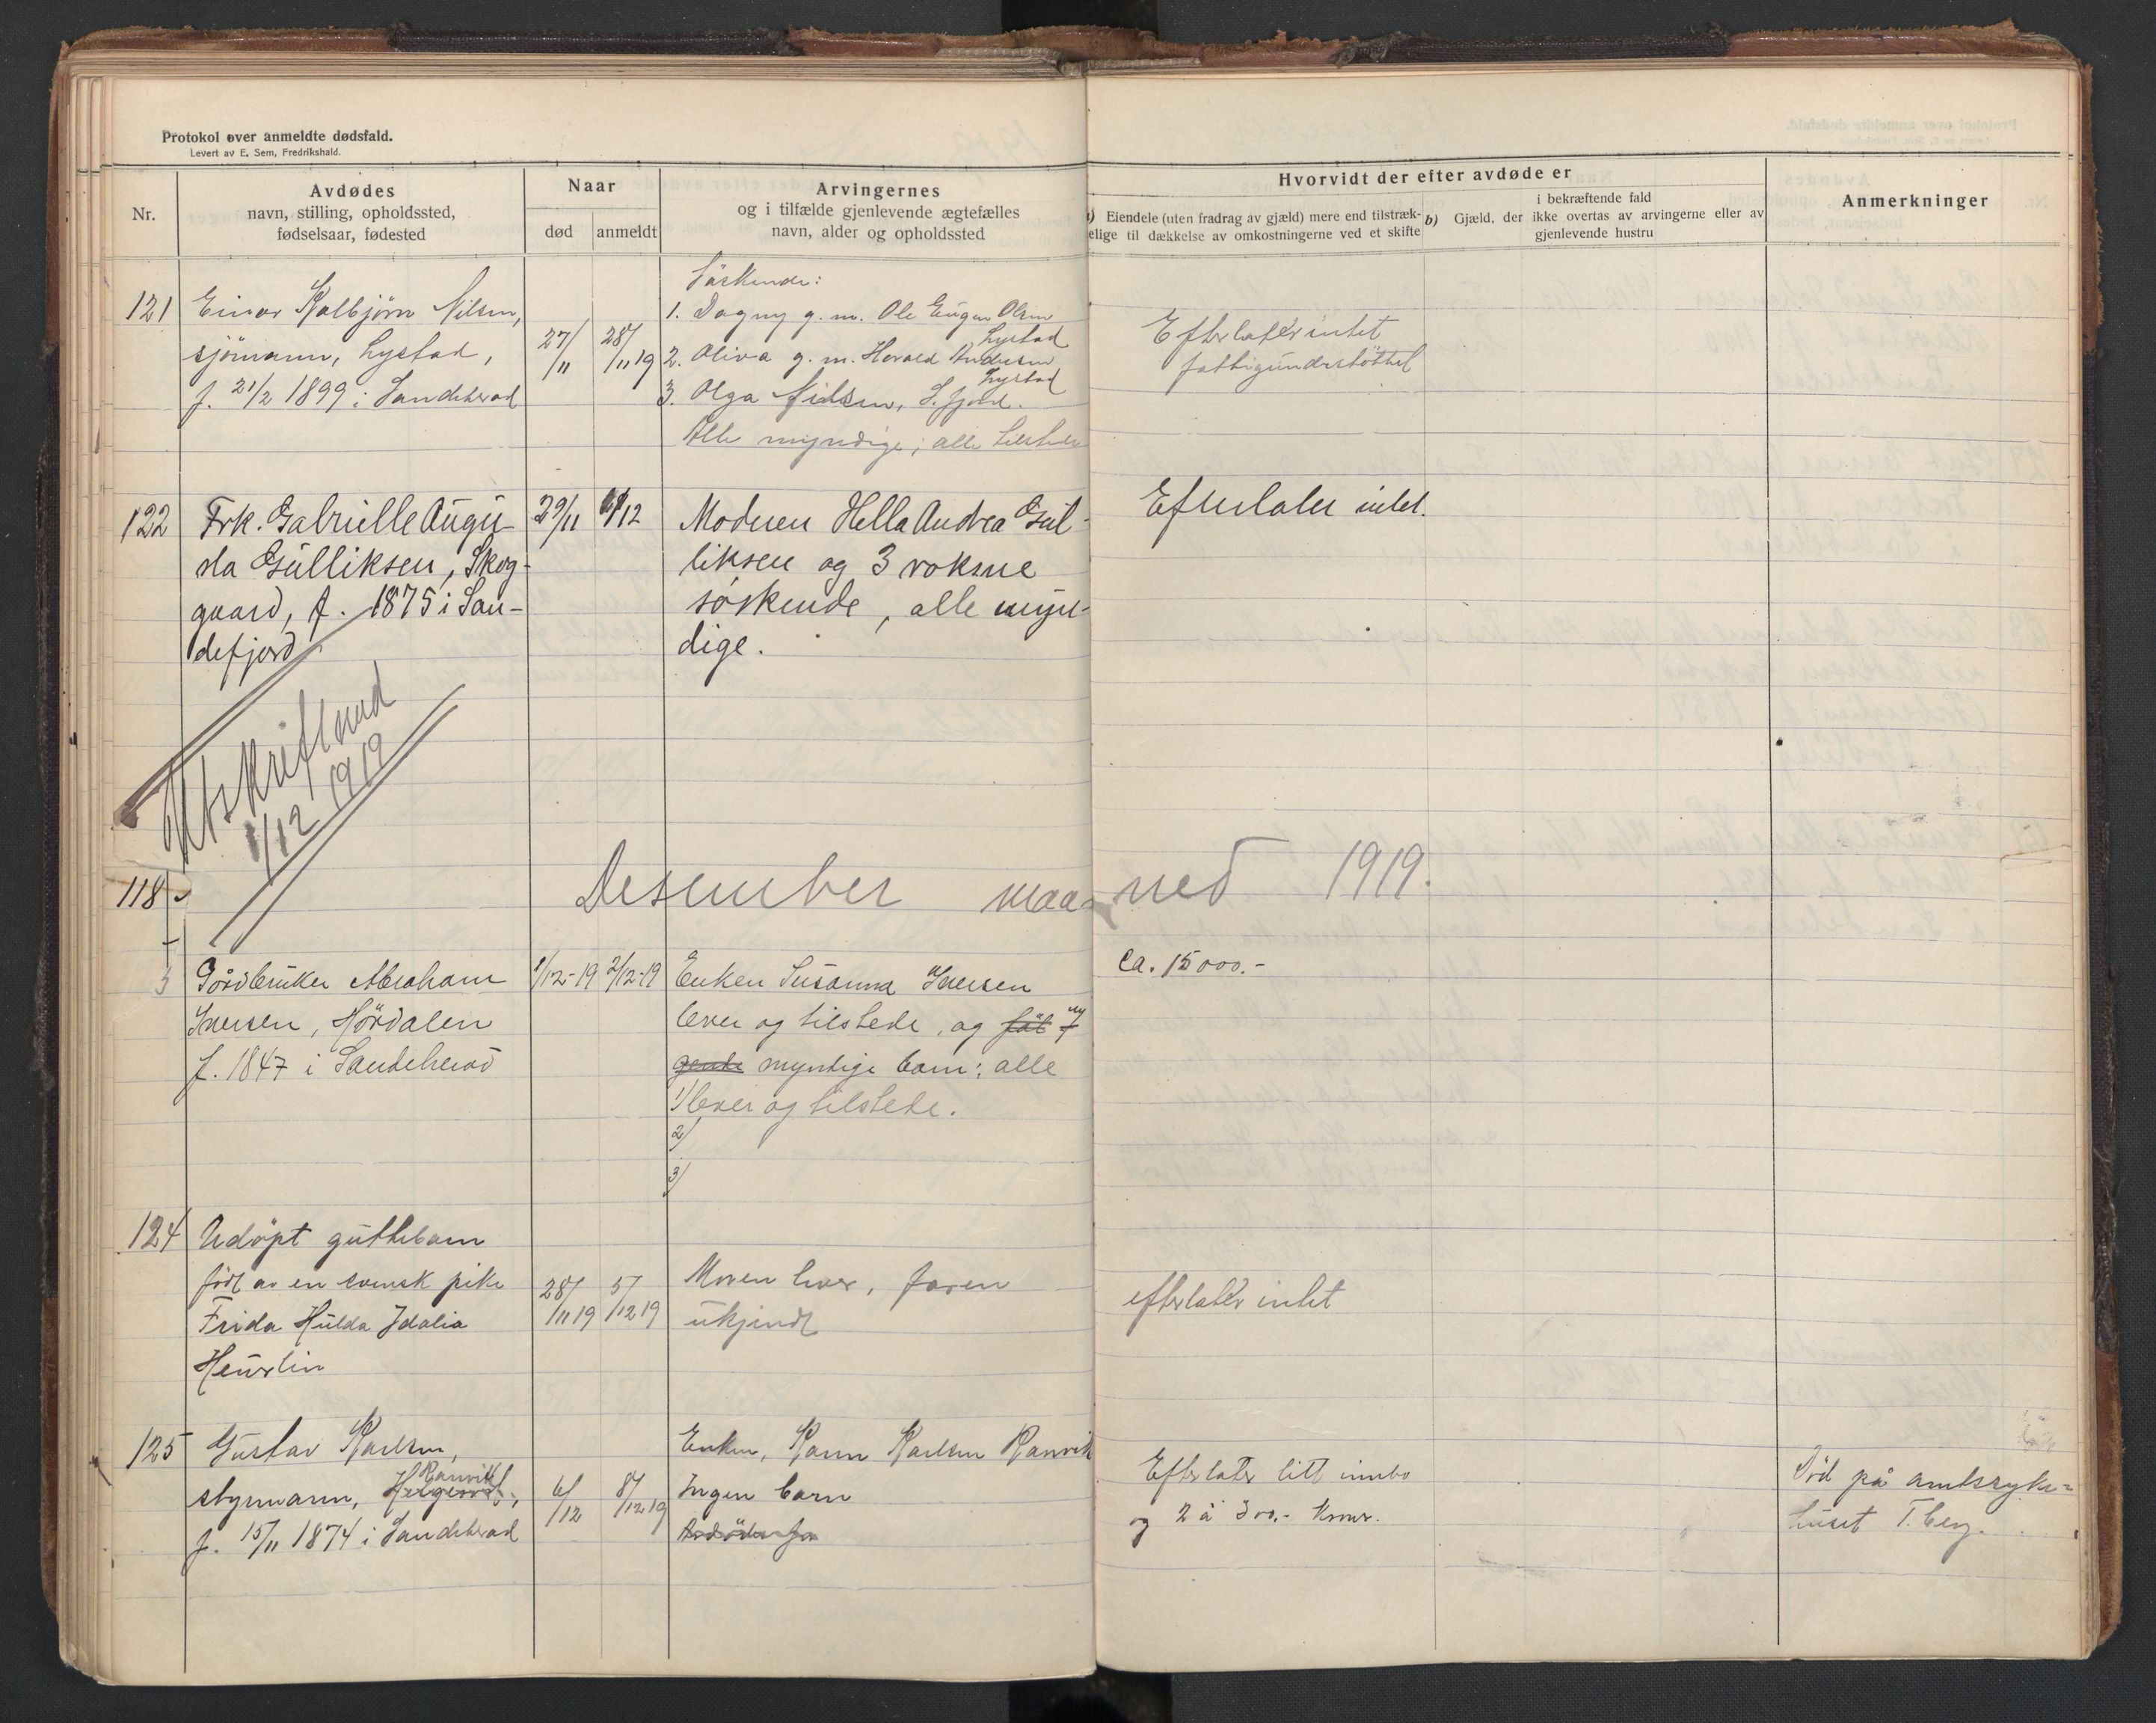 Protokol over anmeldte dødsfald.
Levert av E. Sem, Fredrikshald.
Nr.
Avdødes
navn, stilling, opholdssted,
fødselsaar, fødested
Naar
død
anmeldt
Arvingernes
og i tilfælde gjenlevende ægtefælles
navn, alder og opholdssted
Hvorvidt der efter avdøde er
a) Eiendele (uten fradrag av gjæld) mere end tilstræk-
kelige til dækkelse av omkostningerne ved et skifte
b) Gjæld, der
i bekræftende fald
ikke overtas av arvingerne eller av
gjenlevende hustru
Anmerkninger
121
Einar Kolbjørn Nilsen,
sjömann, Lystad,
f. 21/2 1899 i Sandeherad
27/11
28/11 19
Söskende:
1. Dagny g. m. Ole Eugen Olsen
Lystad
2. Oliva g. m. Harald Andersen
Lystad
3. Olga Nilsen, S. fjord.
Alle myndige; alle tilstede
Efterlater intet
fattigunderstöttet
122
Frk. Gabrielle Augu-
sta Gulliksen, Skog-
gaard, f. 1875 i San-
defjord
29/11
1/12
Moderen Hella Andrea Gul-
liksen og 3 voksne
søskende, alle myn-
dige.
Efterlater intet.
Utskrift send
1/12 1919
118
Desember maa- ned 1919.
3
Gårdbruker Abraham
Iversen, Hördalen
f. 1847 i Sandeherad
1/12-19
2/12-19
Enken Susanna Iversen
lever og tilstede, og föl
gende myndige barn: alle
1/ lever og tilstede.
2/
3/
ca. 15000.-
124
Udöpt guttebarn
född av en svensk pike
Frida Hulda Idalia
Heurlin
28/11 19
5/12 19
Moren lever, faren
ukjendt
efterlater intet
125
Gustav Karlsen,
Ranvik
styrmann, Helgerød,
f. 15/11 1874 i Sandeherad
6/12
8/12 19
Enken, Karen Karlsen Ranvik
Ingen barn
Efterlater litt innbo
og 2 à 300,- kroner.
Död på amtssyke-
huset T.berg.